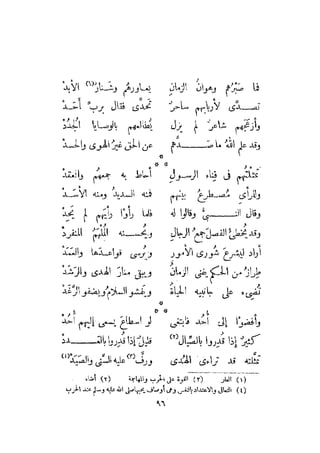 فما صبرهم وهوان الزمان يعاورهم وشنار(١) الأبد
تصدى لأربابهم ساحر تحدى فقال برب أحد
وأزعجهم شاعر لم يزل يطالعهم بالوصايا الجدد
وقد علم الله ما صدهم عن الحق غير الهوى والحسد
تمثلتهم في فناء الرسول أحاط به جمعهم والعدد
وللرأي مصطرع بينهم فمنه السديد ومنه الأسد
وقال النبي وقالوا له فلما رأوا رأيهم لم يحد
وقد يخطئ الفصل جمع الرجال ويحسنه الملهم المنفرد
أراد ليشرع شورى الأمور ويرسى قواعدها والعمد
طراز من الحكم يفنى الزمان ويبقى منار الهدى والرشد
تضيء على جانبيه الحياة ويفشو السلام ويضفو الرغد
وأفضوا إلى أحد فابتغى لو اسطاع يسعى إليهم أحد
كثير إذا قدروا بالصيال(٢) قليل إذا قدروا بالعدد
تمثلته قد تراءى الهدى ورف(٣) عليه السنى والصيد(٤)
(١) العار (٢) القوة على الحرب والمهاجمة (٣) أضاء
(٤) التعالى والاعتداد بالنفس وهى أوصاف يحبها صلى الله عليه وسلم عند الحرب
٩٦